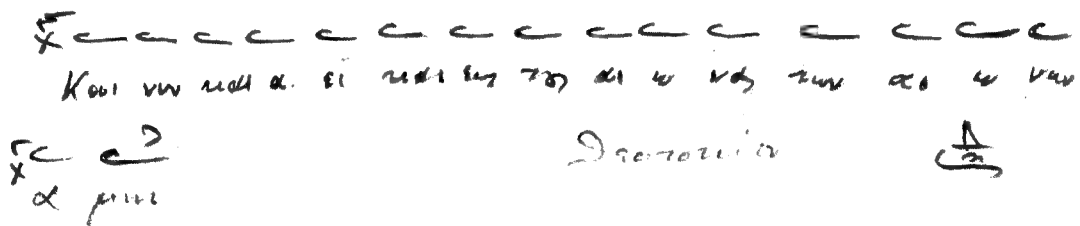 Και νυν και α ει και εις τους αι ω νας των αι ω νων
α μην
Θεοτοκίον